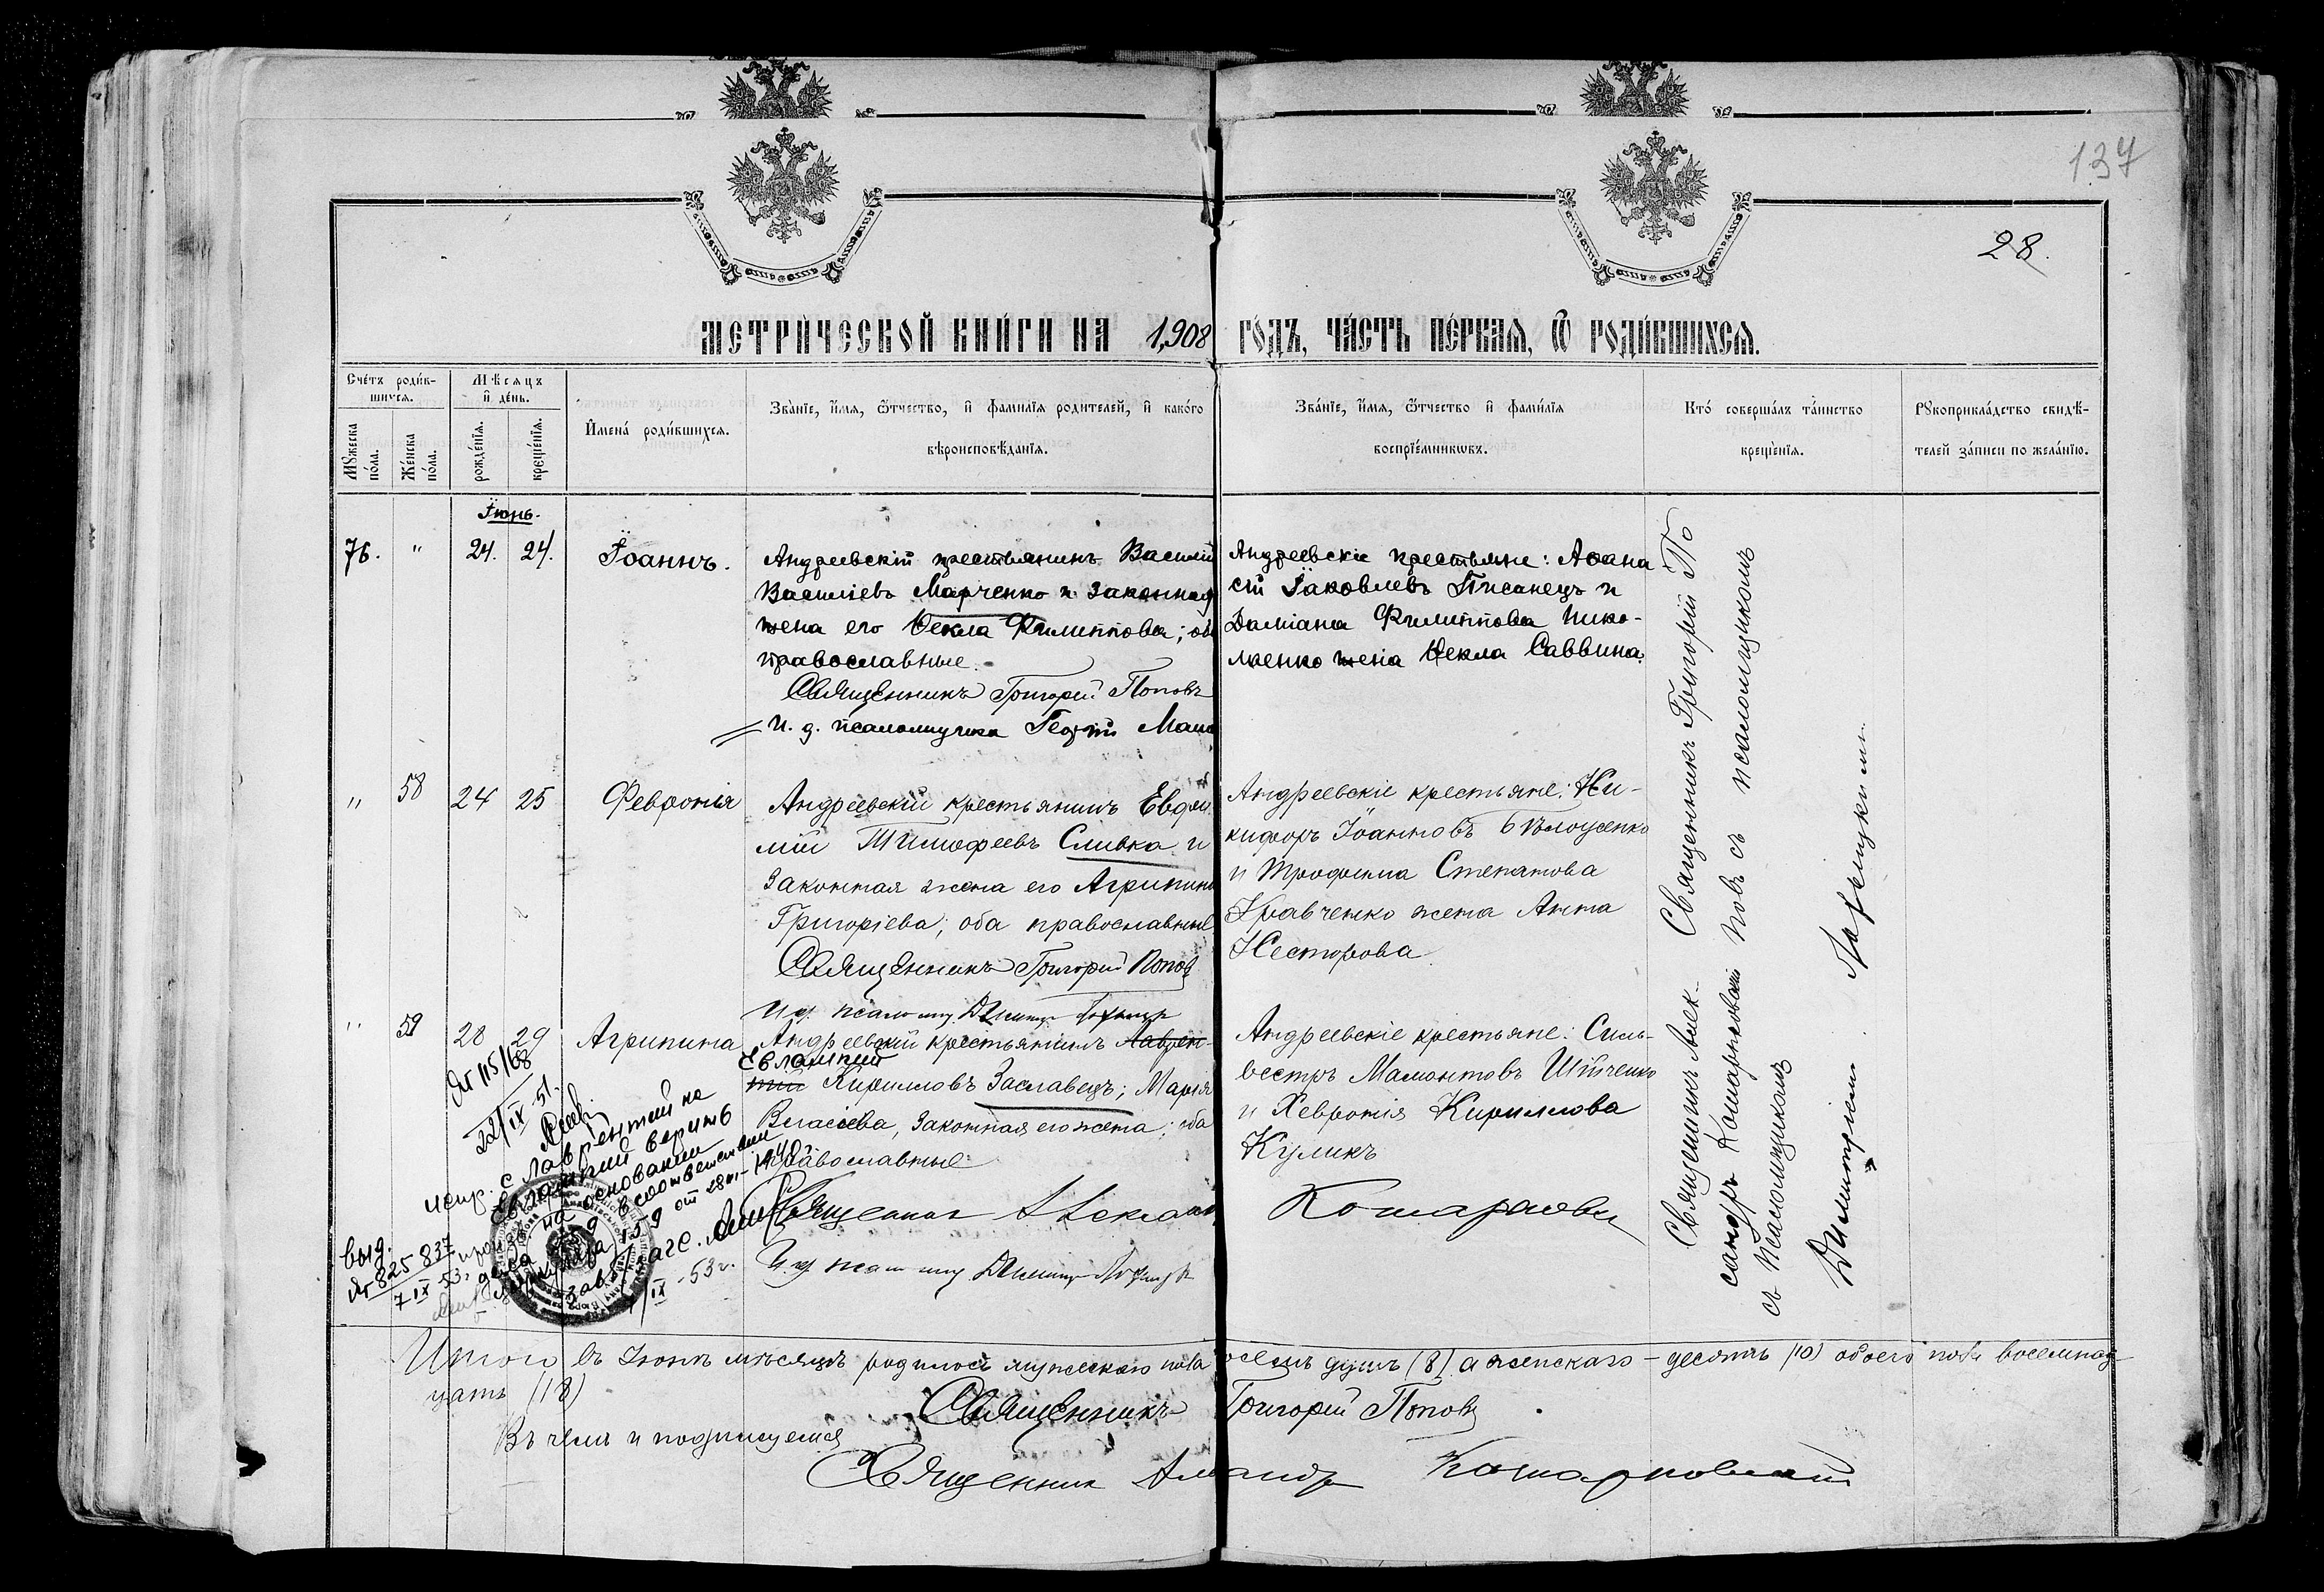 137
28.
МЕТРИ́ЧЕСКОЙ КНИ́ГИ НА 1908 ГО́ДЪ, ЧА́СТЬ ПЕ́РВАЯ, Ѿ РОДИ́ВШИХСЯ.
Сче́тъ роди́в-
шихся.
Мꙋ́жеска по́ла.
Же́нска по́ла.
Мѣ́сяцъ
и҆ де́нь.
рожде́нїя.
креще́нїя.
И҆мена̀ роди́вшихся.
Зва́нїе, и҆́мя, ѻ҆́тчество, и҆ фами́лїя роди́телей, и҆ како́гѡ
вѣроисповѣ́данїя.
Зва́нїе, и҆́мя, ѻ҆́тчество и҆ фами́лїя
воспрїе́мникѡвъ.
Кто̀ соверша́лъ та́инство
креще́нїя.
Рꙋкоприкла́дство свидѣ́-
телей за́писи по жела́нїю.
Іюнь.
76. " 24. 24. Іоаннъ.
Андреевскій крестьянинъ Василій
Василіевъ Марченко и законная
жена его Ѳекла Филиппова; оба
православные.
Священникъ Григорій Поповъ
И. д. псаломщика Георгій
Андреевскіе крестьяне: Аѳана-
сій Іаковлевъ Писанецъ и
Даміана Филиппова Нико-
лаенко жена Ѳекла Саввина.
Священникъ Григорій По-
повъ съ псаломщикомъ
" 58 24 25 Февронія
Андреевскій крестьянинъ Евфи-
мій Тимофеевъ Сливка и
законная жена его Агрипина
Григоріева; оба православные
Священникъ Григорій Поповъ
И. д. псаломщ. Димитр
Андреевскіе крестьяне: Ни-
кифоръ Іоанновъ Бѣлоусенко
и Трофима Степанова
Кравченко жена Анна
Несторова.
" 59 28 29 Агрипина
Андреевскій крестьянинъ Лаврен-
Евлампий
тій Кирилловъ Заславецъ; Марія
Власіева, законная его жена; оба
православные.
Священник Александр
И. д. псаломщ Димитр
Андреевскіе крестьяне: Силь-
вестръ Мамонтовъ Шійченко
и Хевронія Кириллова
Куликъ
Кошарновск
Священникъ Алек-
сандръ Кошарновскій
съ псаломщикомъ
Димитріемъ
№ 115/68
22/IX 51.
испр. с Лаврентий на
Евлампий верить
на основании
в соответствии
159 от 28
зав. загс.
IX - 53 г.
выд.
№ 825837
7 IX 53 г.
Итого въ Іюнѣ мѣсяцѣ родилось мужескаго пола восемь душъ (8) а женскаго – десять (10) обоего пола восемнад-
цать (18)
Священникъ Григорій Поповъ
Въ чемъ и подписуемся
Священник Александр Кошарновскій